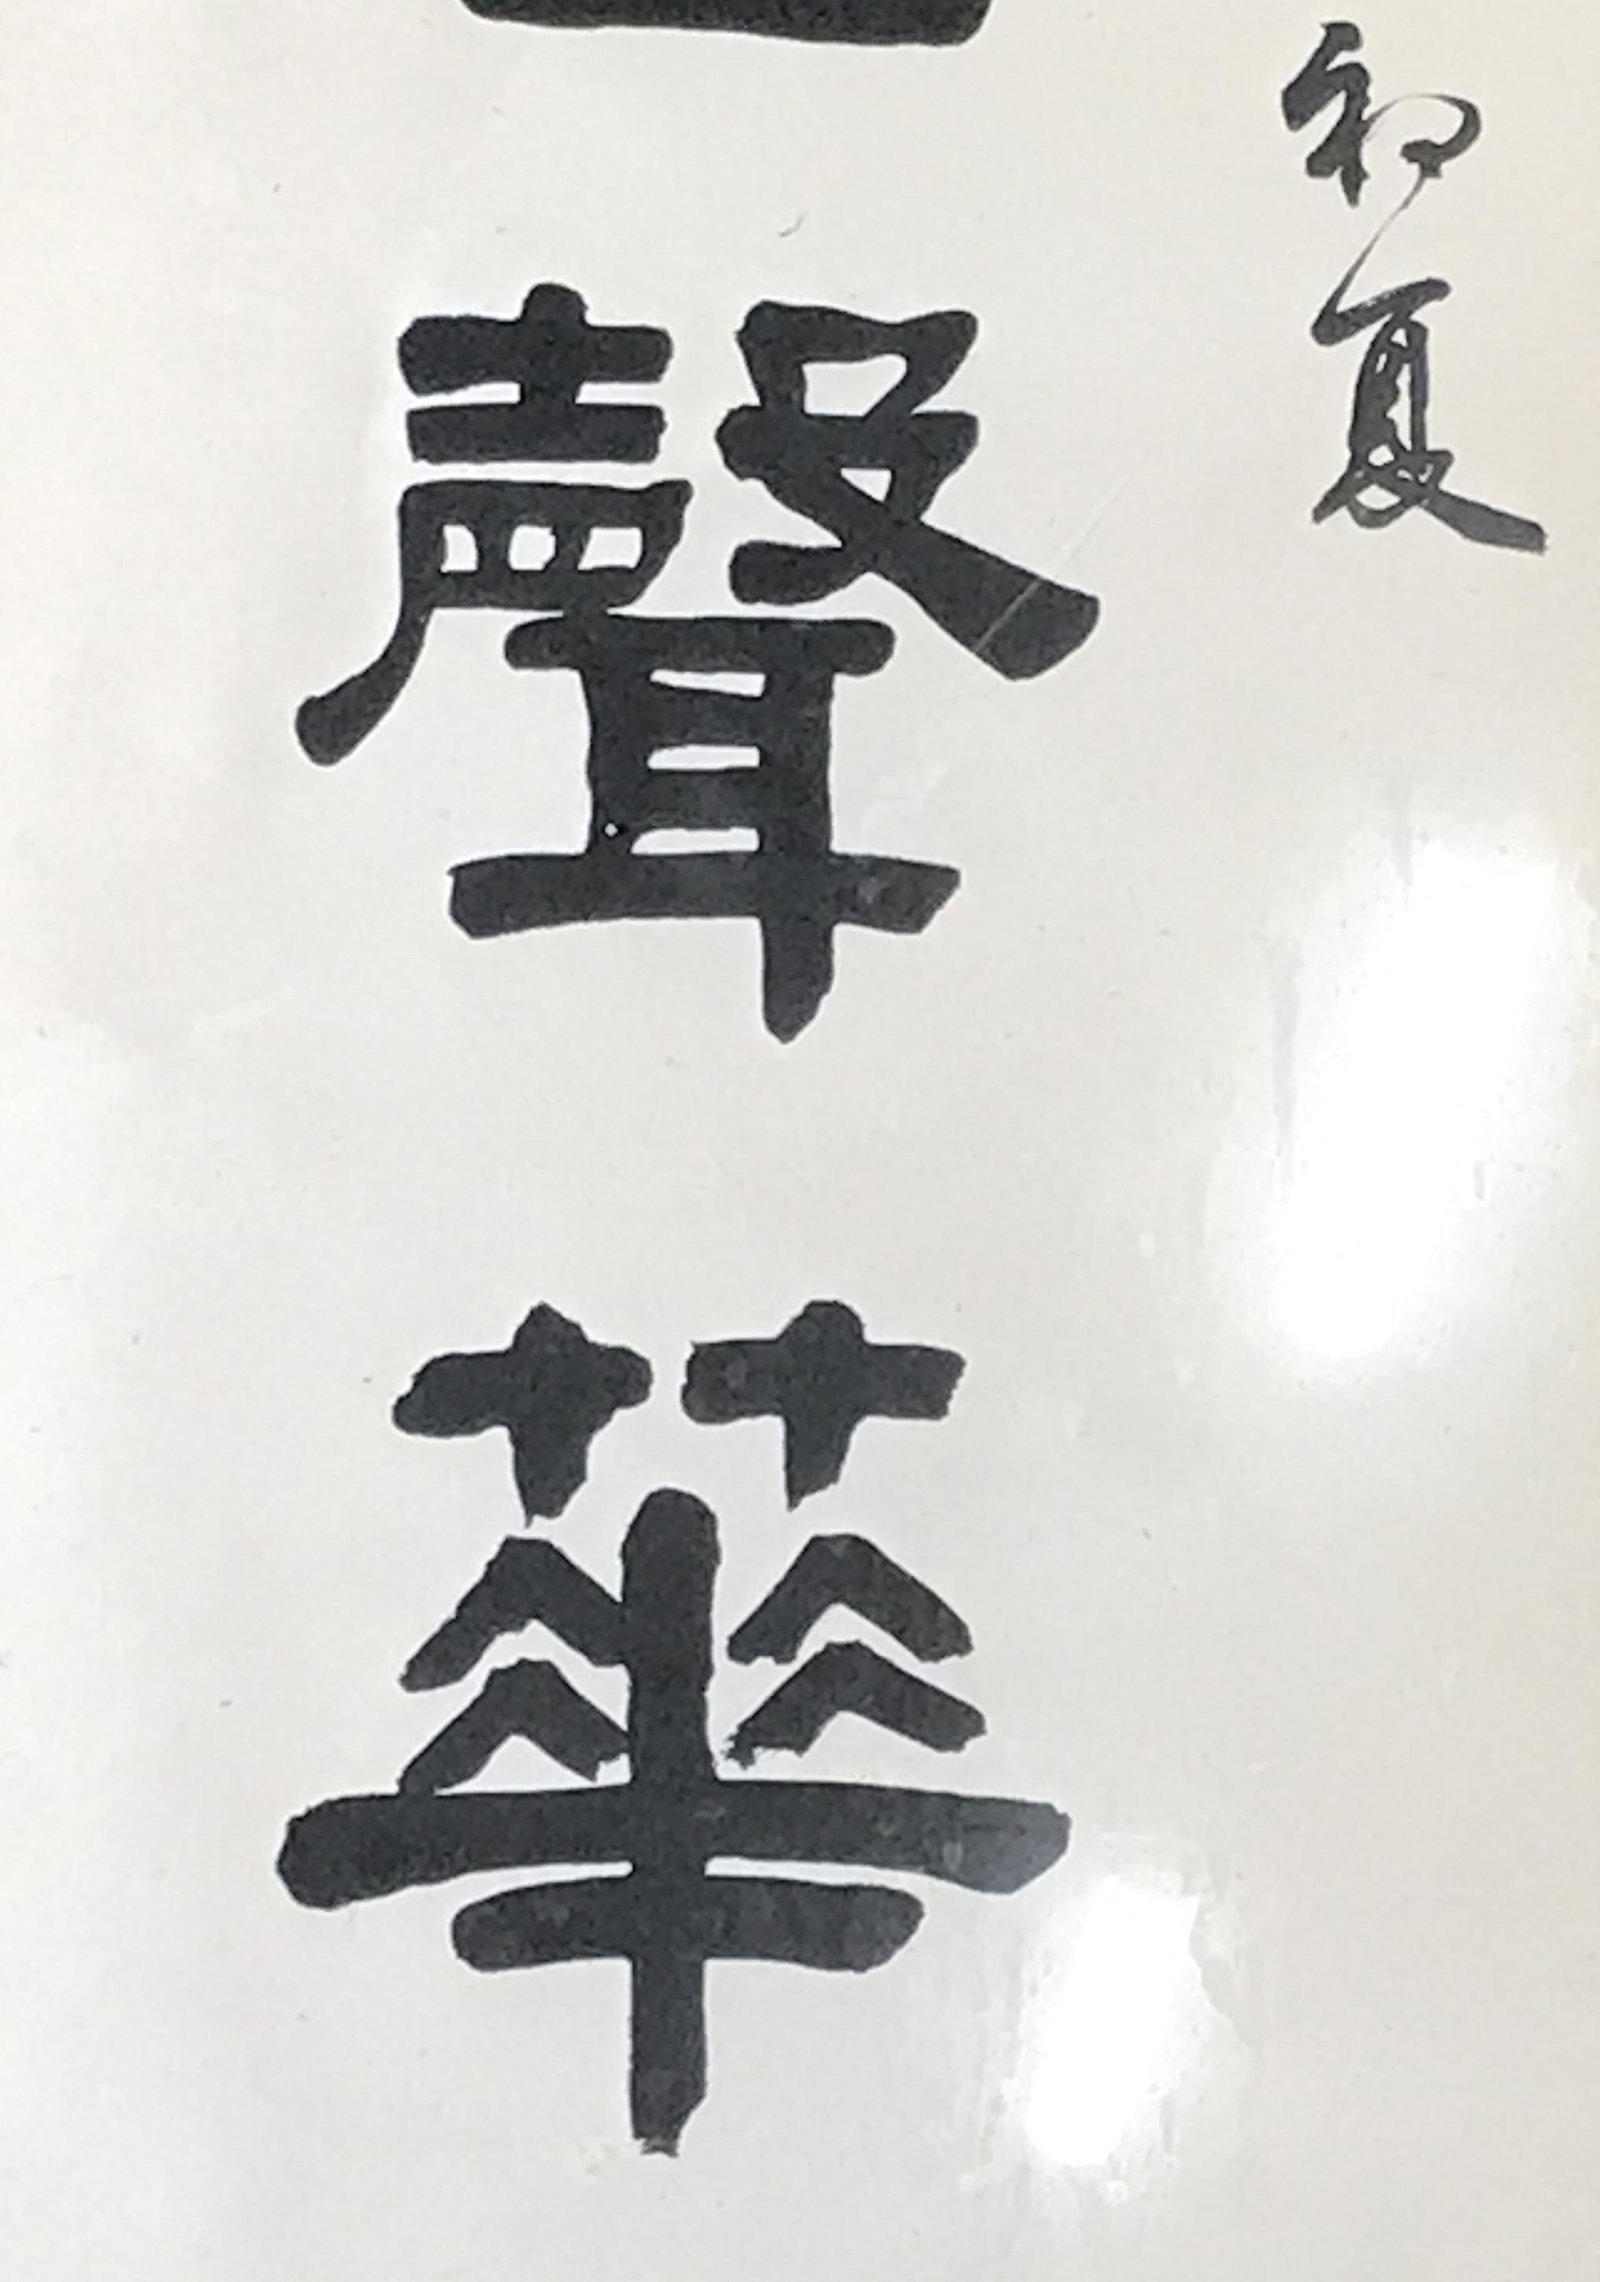 初夏
聲華